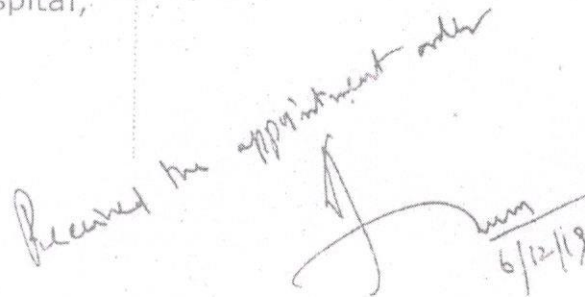 spital,
Received the appointment order
6/12/19